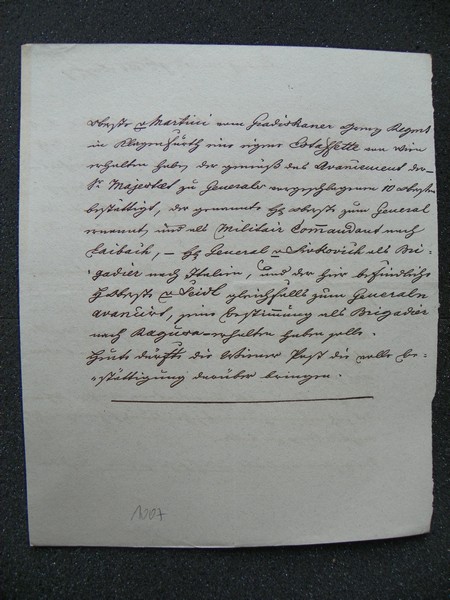 Oberste v Martini vom Gradiskaner Grenz Regmt
in Klagenfurth eine eigene Estaffette von Wien
erhalten habe, der gemäß das Avancement der
Sr Majestæt zu Generals vorgeschlagenen 10 Obersten
bestättigt, der genannte H Oberste zum General
ernannt, und als Militair Commandant nach
Laibach, – H General v als Bri-
gadier nach Italien, und der hier befindliche
H Oberste v Seidl gleichfalls zum Generalen
avancirt, seine Bestimmung als Brigadier
nach Ragusa erhalten haben solle.
Heute dürfte die Wiener Post die volle Be-
stättigung darüber bringen.
1807